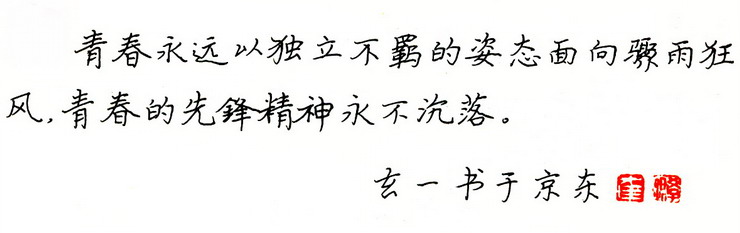 青春永远以独立不羁的姿态面向骤雨狂
风,青春的先鋒精神永不沉落。
玄一书于京东